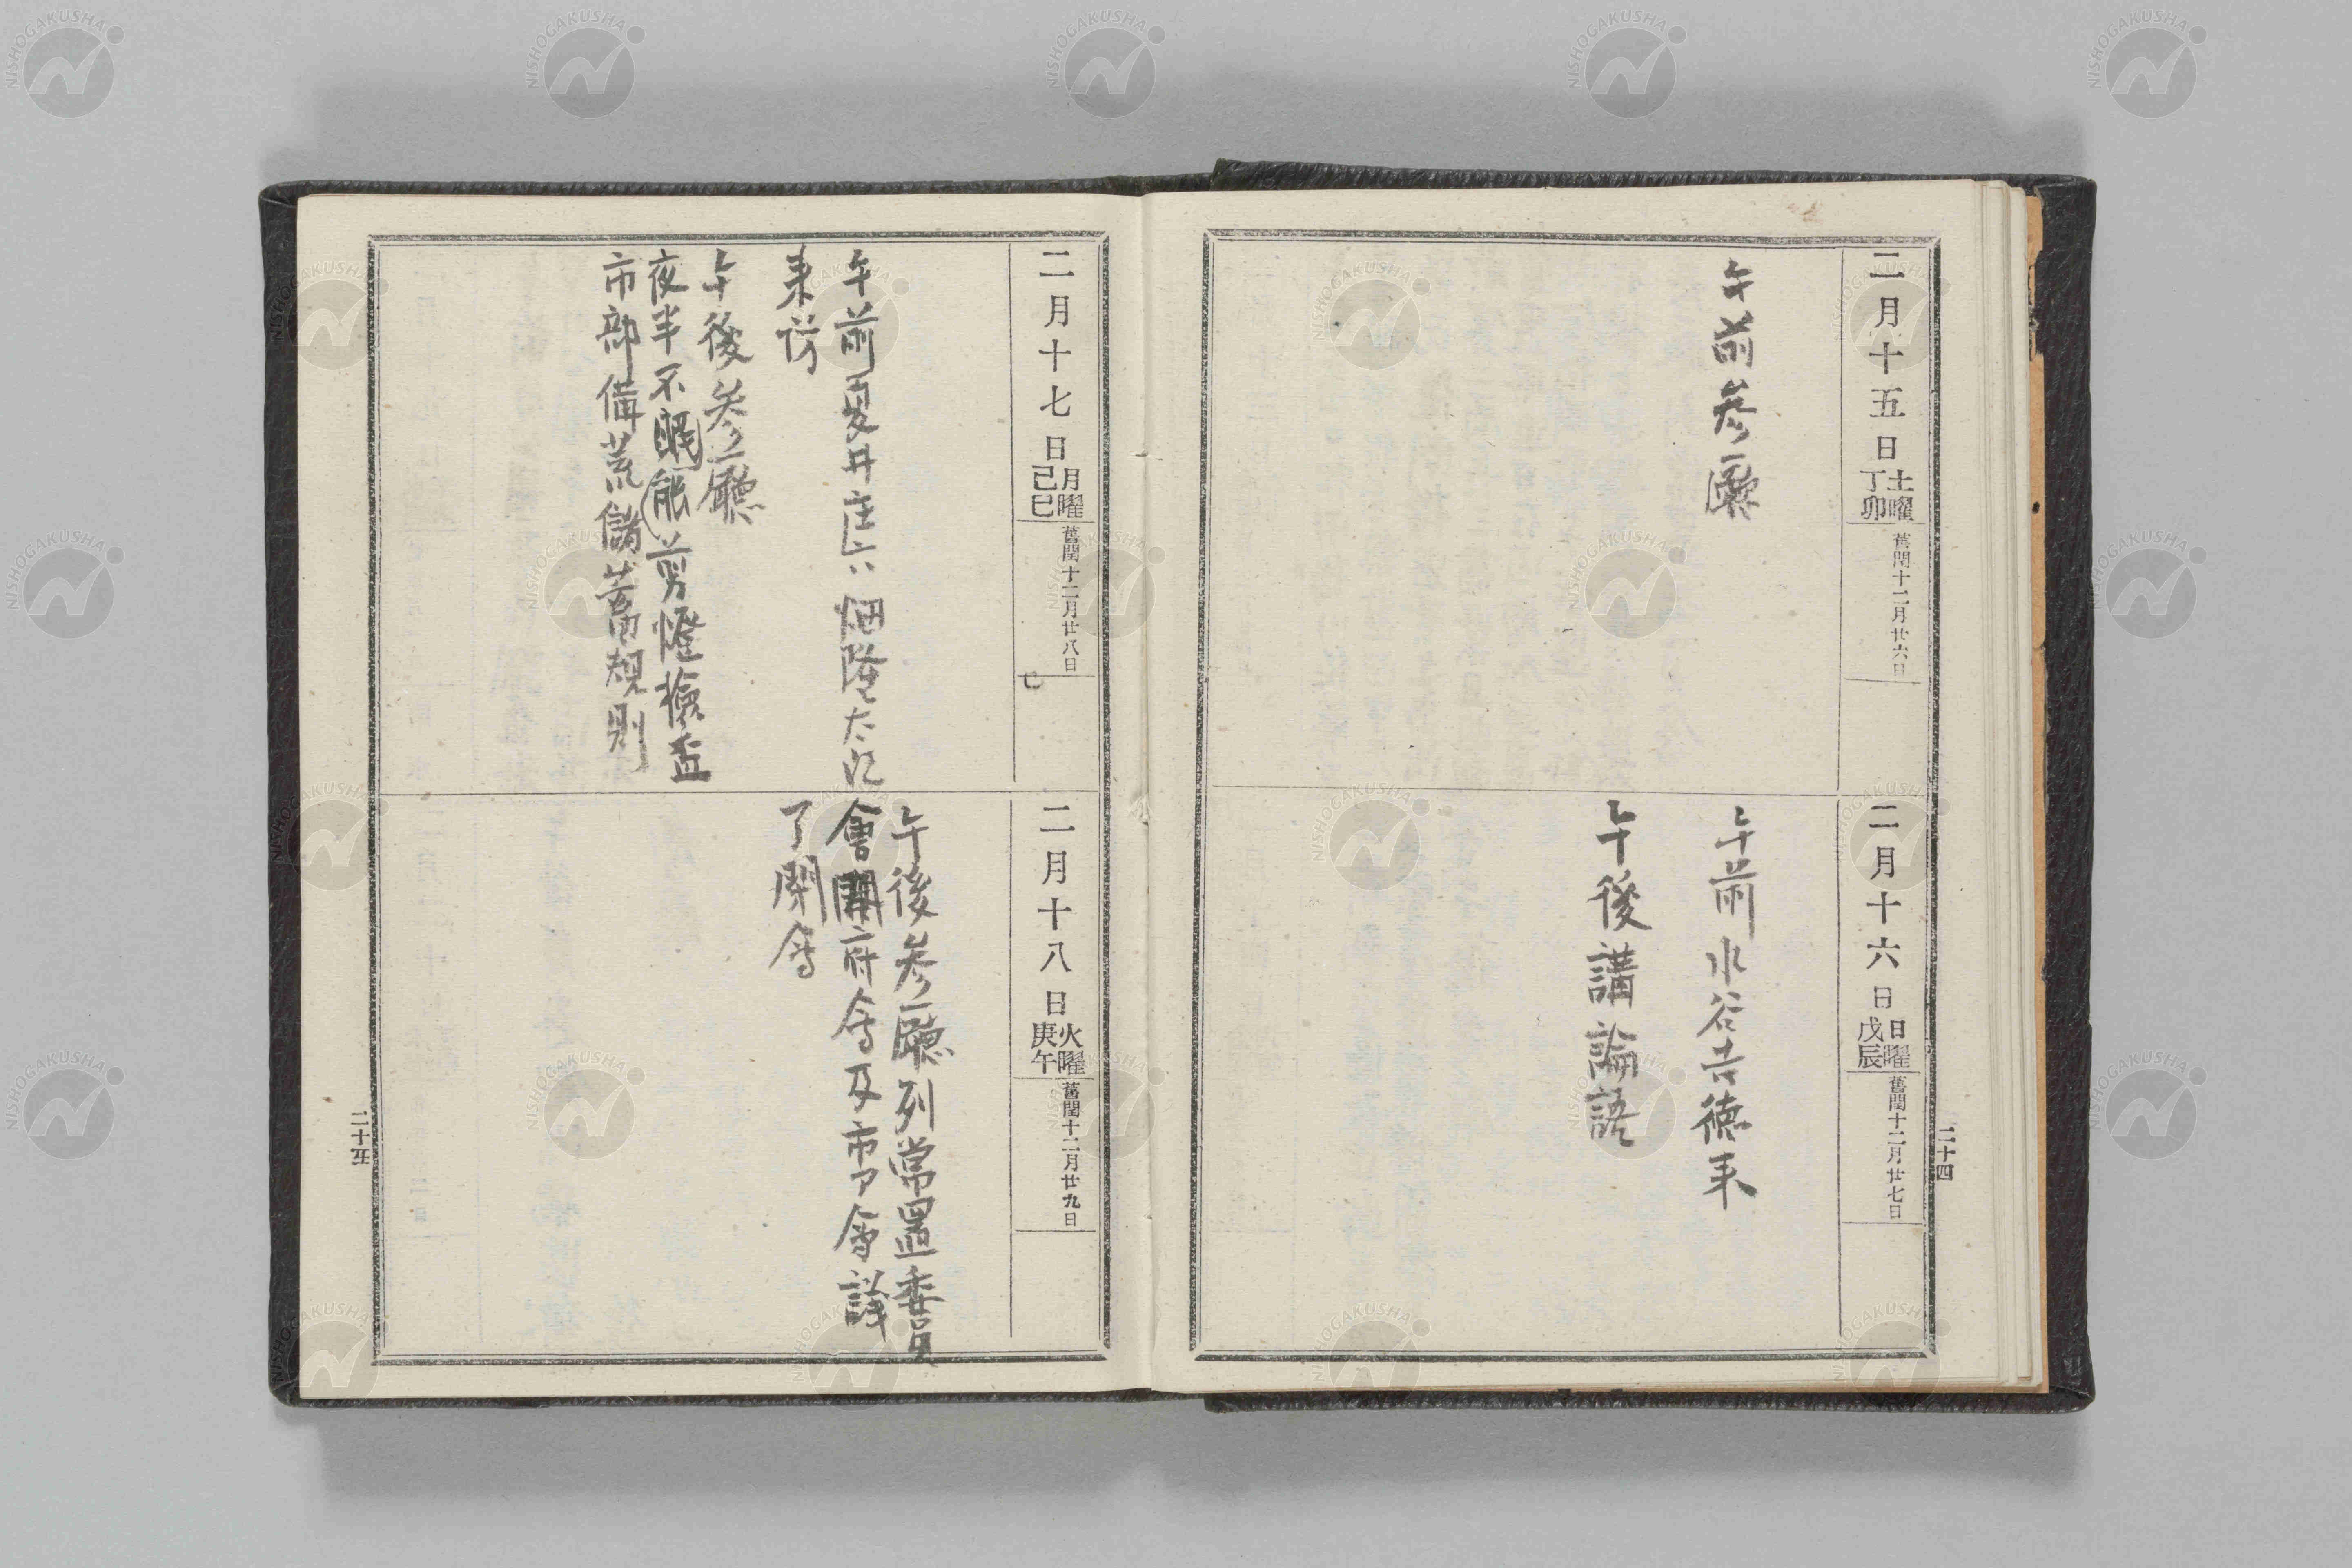 二月十五日 土曜 丁卯 舊閏十二月廿六日
午前参廳
二月十六日 日曜 戊辰 舊閏十二月廿七日
午前水谷吉徳来
午後講論語
二十四
二月十七日 月曜 己巳 舊閏十二月廿八日
午前夏井庄六畑隆太郎
来訪
午後参廳
夜半不眠能剪燈検査
市部備荒儲蓄規則
二月十八日 火曜 庚午 舊閏十二月廿九日
午後参廳列常置委員
會開府会及市部会議
了閉会
二十五
NISHOGAKUSHA